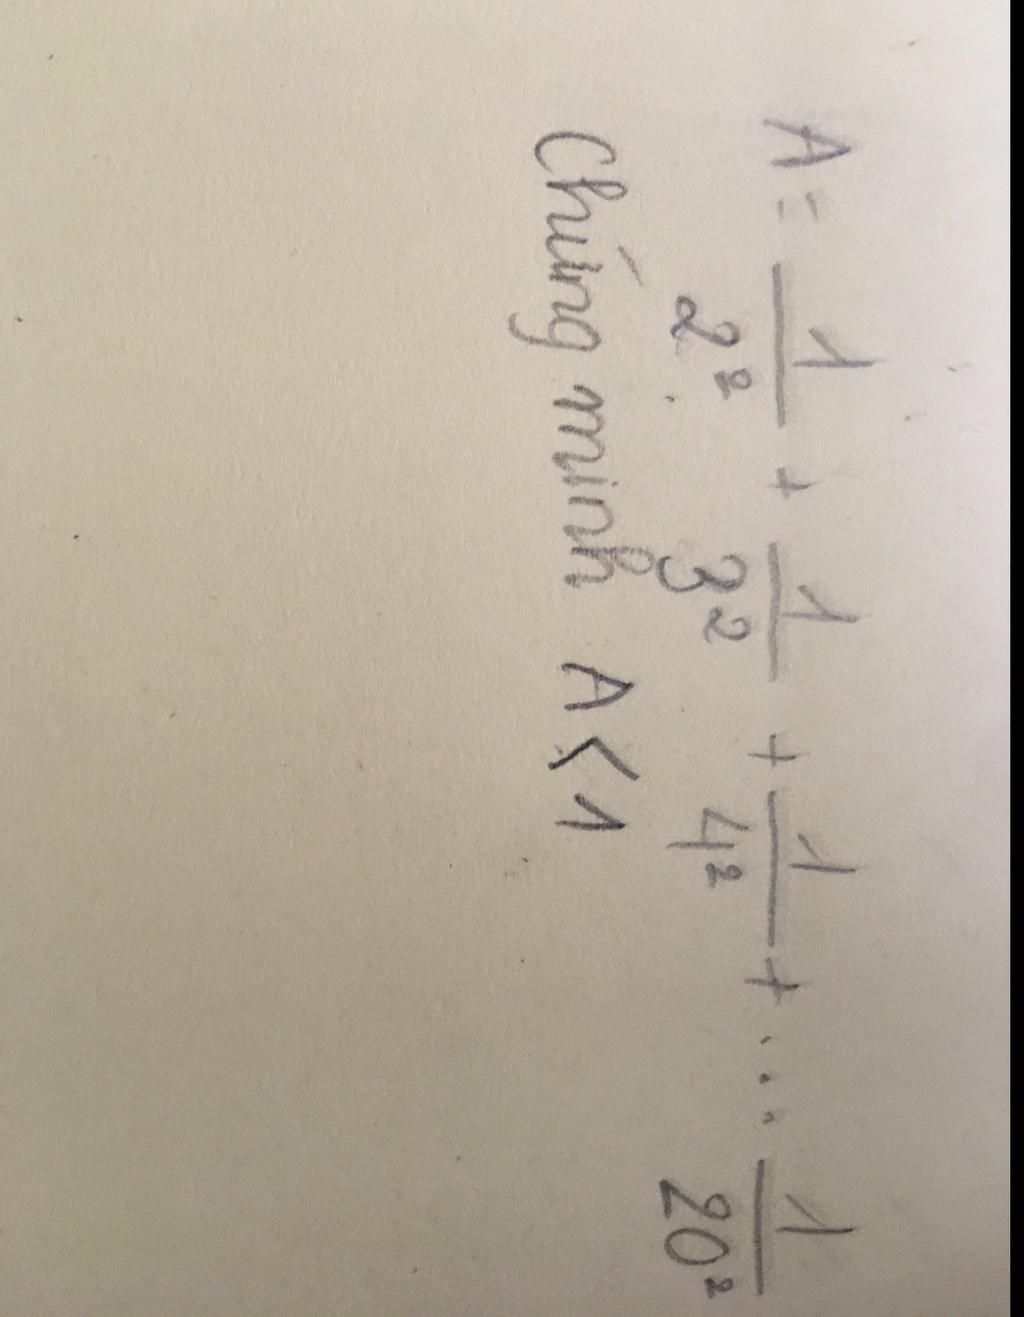 A = 1/2² + 1/3² + 1/4² + ... 1/20²
Chứng minh A < 1